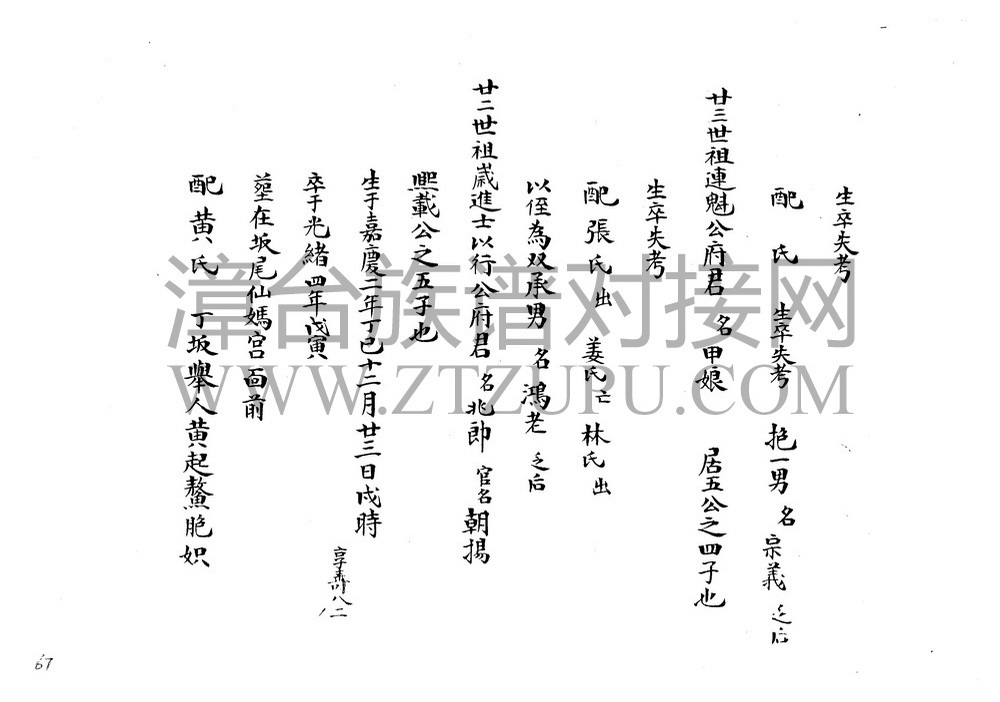 生卒失考
配 氏 生卒失考 抱一男 名 宗義 之后
廿三世祖連魁公府君 名 甲娘 居五公之四子也
生卒失考
配 張氏 出 姜氏 亡 林氏 出
以侄為双承男 名 鴻老 之后
廿二世祖歲進士以行公府君 名 兆郎 官名 朝揚
熙載公之五子也
生于嘉慶二年丁巳十二月廿三日戌時
卒于光緒四年戊寅 享壽八二
塟在坂尾仙媽宫面前
配 黄氏 丁坂舉人黄起鰲胞
漳台族谱对接网
WWW.ZTZUPU.COM
67